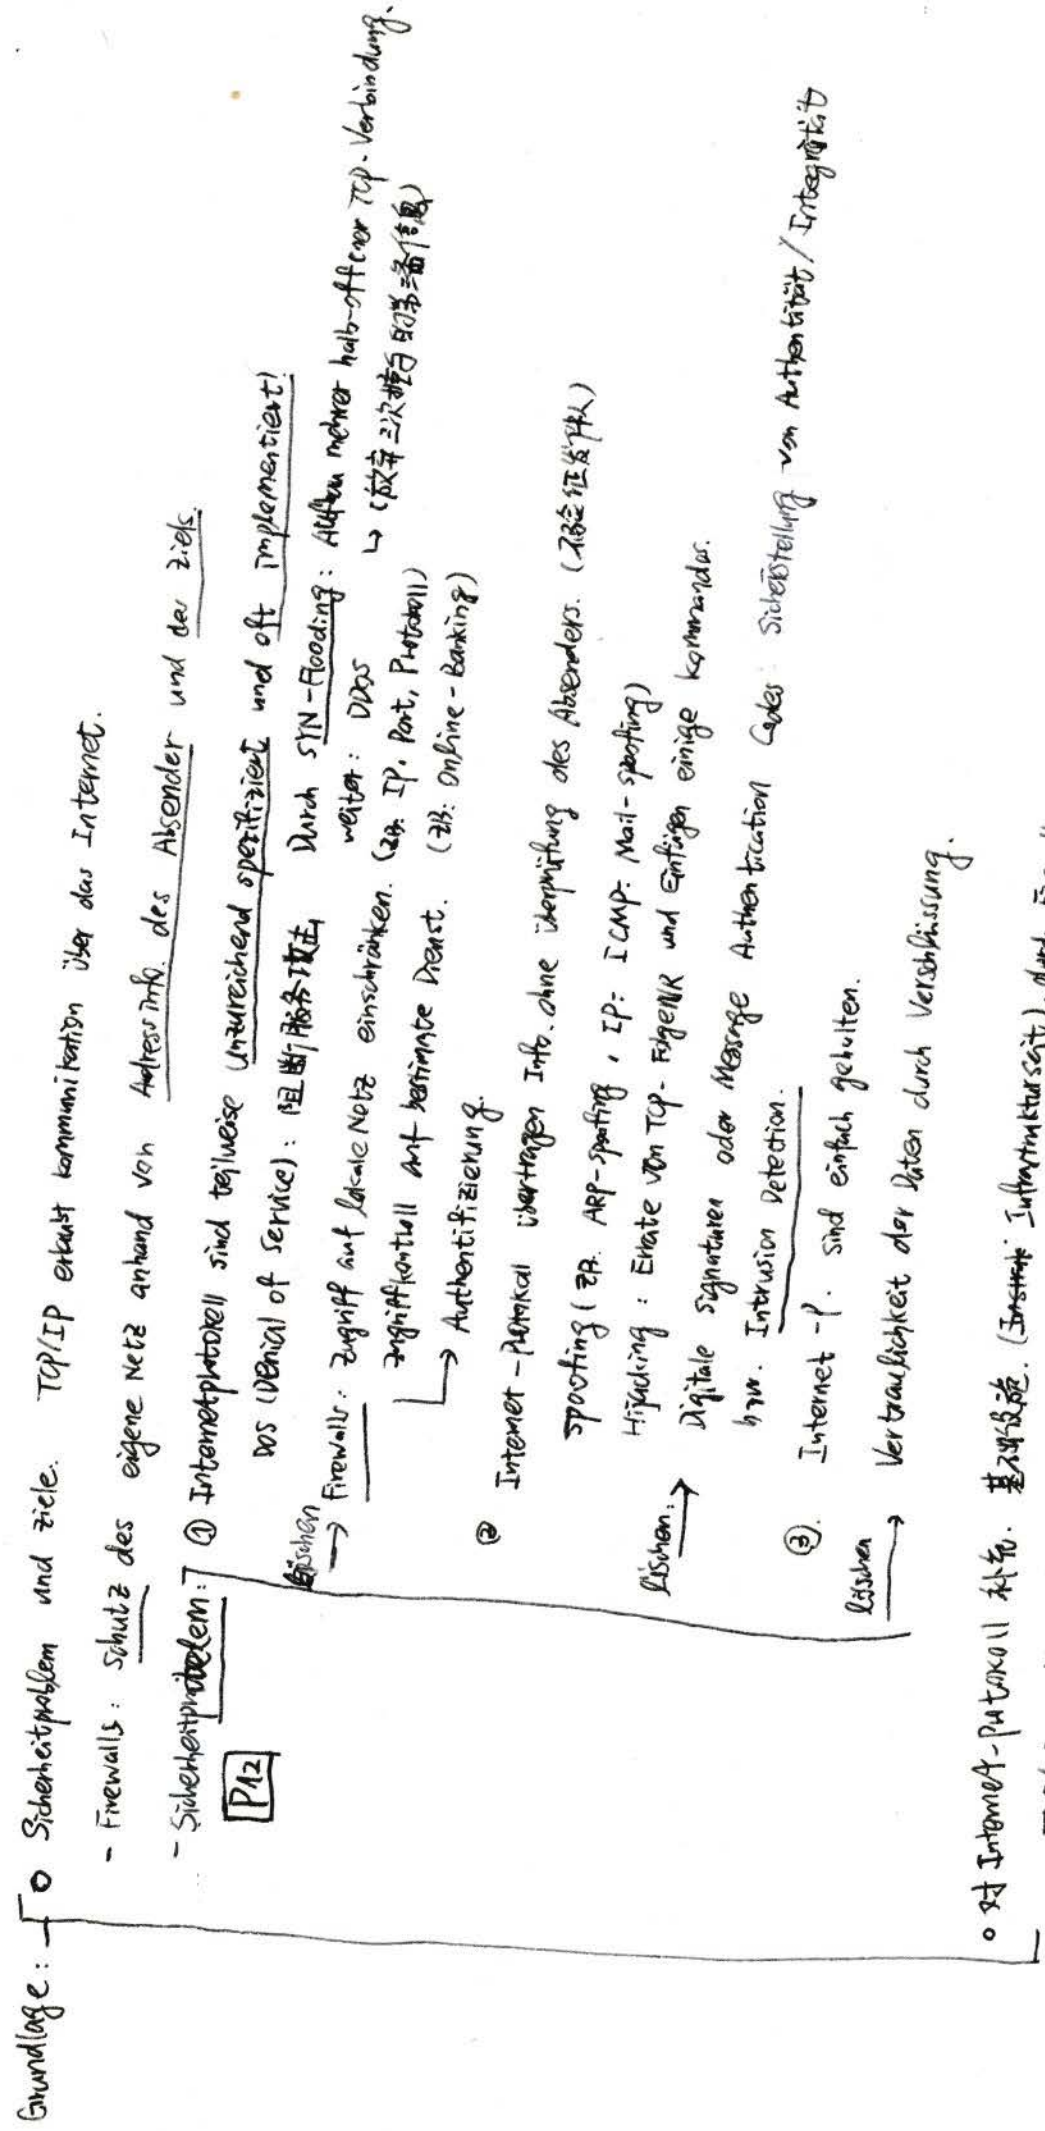 Grundlage:
○ Sicherheitproblem und ziele. TCP/IP erlaubt kommunikation über das Internet.
- Firewalls: Schutz des eigene Netz anhand von Adressinfo. des Absender und der ziels.
- Sicherheitproblem:
P12
① Internetprotokoll sind teilweise unzureichend spezifiziert und oft implementiert!
DOS (Denial of Service): 阻断服务攻击 Durch SYN-Flooding: Aufbau mehrer halb-offener TCP-Verbindung.
weiter: DDOS ↳ (放弃三次握手的第三者信息)
löschen → Firewalls: zugriff auf lokale Netz einschränken. (zB. IP, Port, Protokoll)
zugriffkontroll auf bestimmte Dienst. (zB: Online-Banking)
↳ Authentifizierung.
② Internet-Protokol übertragen Info. ohne überprüfung des Absenders. (不验证发件人)
Spoofing (zB. ARP-Spoofing, IP: ICMP: Mail-spoofing)
Hijacking: Errate von TCP-FolgeNR und Einfügen einige kommandos.
löschen: → Digitale Signaturen oder Message Authentication Codes: Sicherstellung von Authentität/Integrität
bzw. Intrusion Detection.
③. Internet-P. sind einfach gehalten.
löschen → Vertraulichkeit der Daten durch Verschlüssung.
○ 对 Internet-Putokoll 补充. 基础设施. (Infrastruktursit). durch